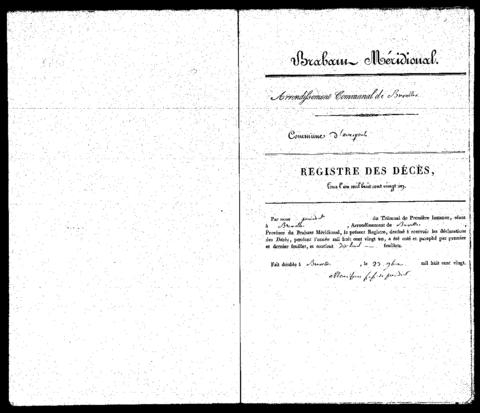 Brabant Méridional.
Arrondissement Communal de Bruxelles
Commune d'
REGISTRE DES DÉCÈS,
Pour l'an mil huit cent vingt un.
Par nous président du Tribunal de Première Instance, séant
à Bruxelles, Arrondissement de Bruxelles,
Province du Brabant Méridional, le présent Registre, destiné à recevoir les déclarations
des Décès, pendant l'année mil huit cent vingt un, a été coté et paraphé par premier
et dernier feuillet, et contient feuillets.
Fait double à Bruxelles, le 22 9bre mil huit cent vingt.